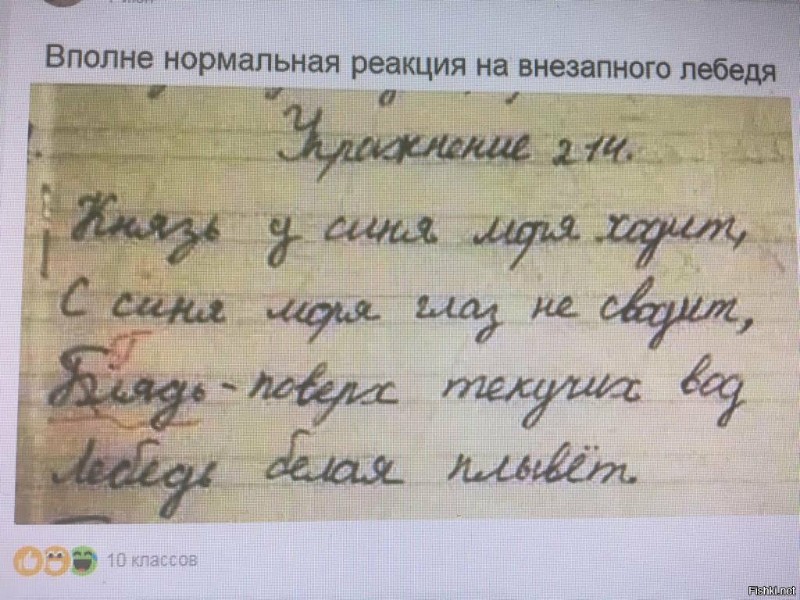 Вполне нормальная реакция на внезапного лебедя
Упражнение 214.
Князь у синя моря ходит,
С синя моря глаз не сводит,
Г
Блядь - поверх текучих вод
Лебедь белая плывёт.
10 классов
Fishki.net